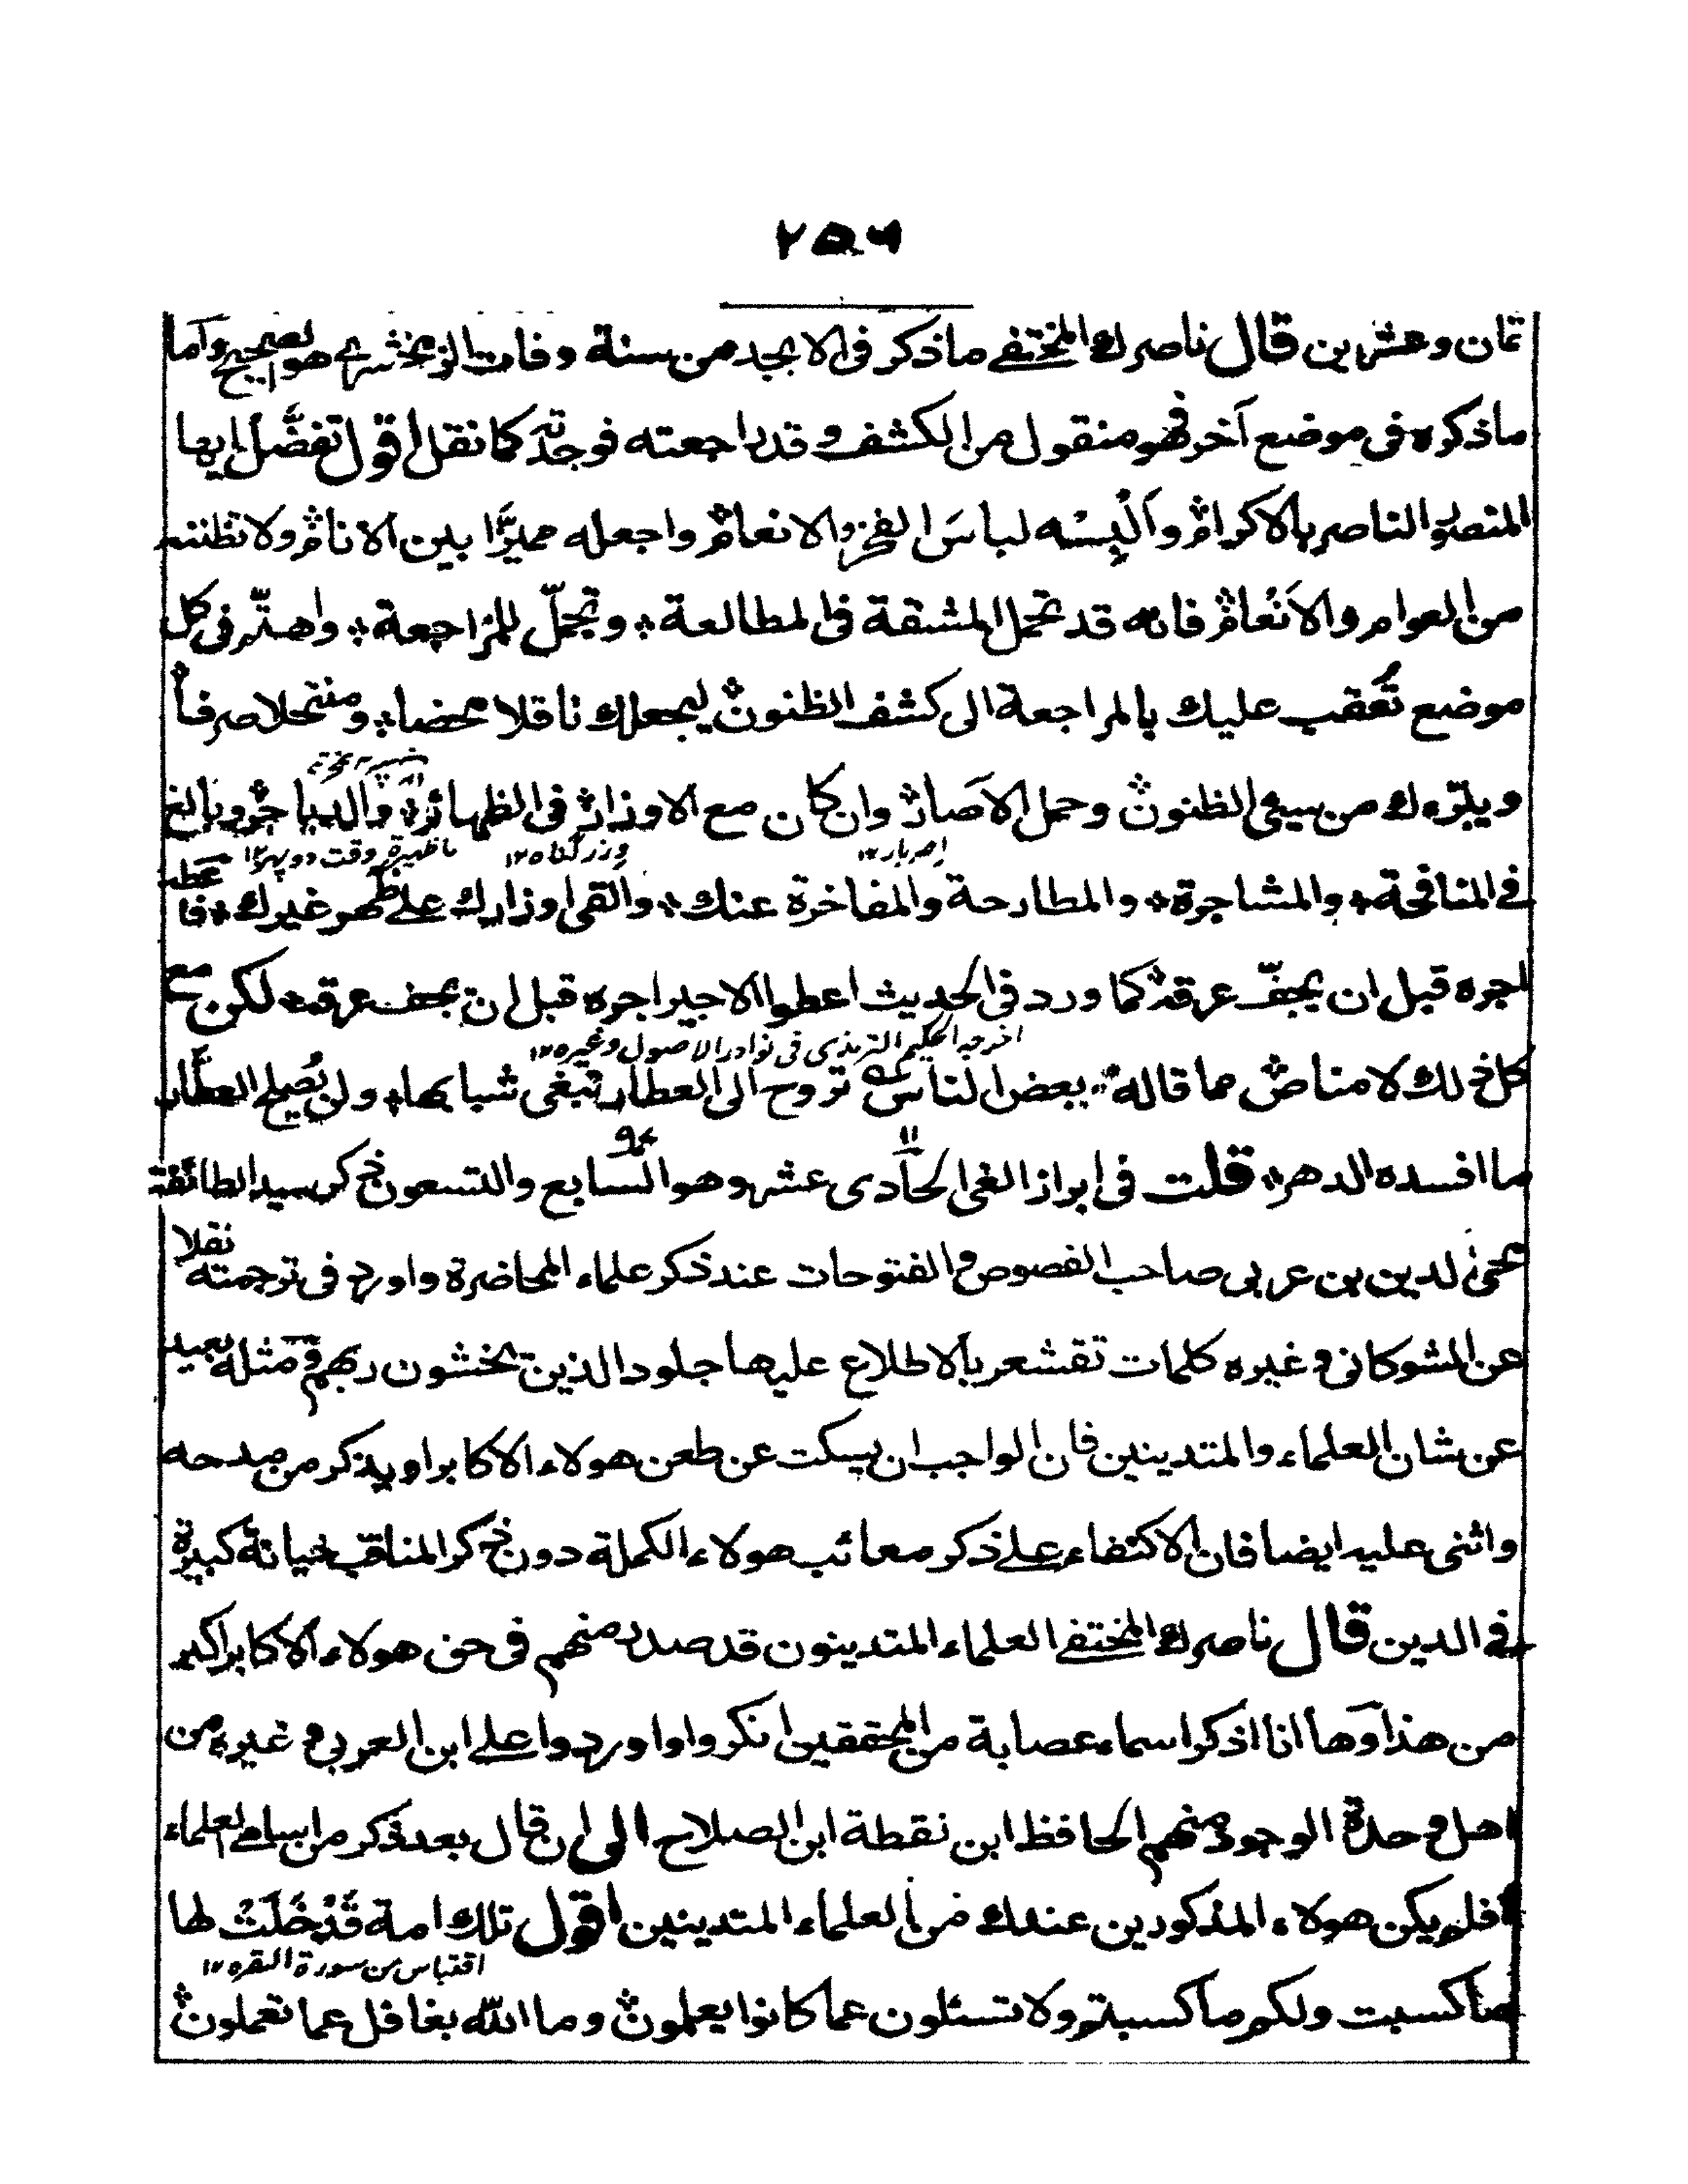 ٢٥٦
ثمان وعشرين قال ناصرك المختفے ما ذكر فى الابجد من سنة وفات الزمخشرے هو الصحيح واما
ما ذكره فى موضع آخر فهو منقول من الكشف وقد راجعته فوجدته كما نقل اقول تفضّل ايها
المنصور الناصر بالاكرام؞ وَاَلْبِسْه لباسَ الفخر والانعام؞ واجعله مميزًا بين الانام؞ ولا تظننه
من العوام والاَنعام؞ فانه قد تحمل المشقة فى المطالعة؞ وتجمّل للمراجعة؞ واهتزّ فى كل
موضع تُعقب عليك بالمراجعة الى كشف الظنون؞ ليجعلك ناقلا محضا؞ ومنتحلا صرفا؞
ويبرّءك من سيئ الظنون؞ وحمل الاصار؞ وان كان مع الاوزار؞ فى الظهائر؞ والدياجر؞ وبالغ
اصر بار ١٢
وزر گناه ١٢
ظهيرة وقت دوپہر ١٢
فے المنافحة؞ والمشاجرة؞ والمطارحة والمفاخرة عنك؞ والقى اوزارك علے ظهر غيرك؞ فاعطه
اجره قبل ان يجفّ عرقه؞ كما ورد فى الحديث اعطوا الاجير اجره قبل ان يجف عرقه؞ لكن مع
اخرجه الحكيم الترمذى فى نوادر الاصول وغيره ١٢
كل ذلك لا مناص؞ مما قاله؞ بعض الناس؞ تروح الى العطار تبغى شبابها؞ ولن يُصلح العطّار
ما افسده الدهر؞ قلت فى ابراز الغى الحادى عشر وهو السابع والتسعون ذكر سيد الطائفة
١١
٩٧
محى الدين بن عربى صاحب الفصوص والفتوحات عند ذكر علماء المحاضرة واورد فى ترجمته نقلا
عن الشوكانى وغيره كلمات تقشعر بالاطلاع عليها جلود الذين يخشون ربهم ومثله بعيد
عن شان العلماء والمتدينين فان الواجب ان يسكت عن طعن هولاء الاكابر او يذكر من مدحه
واثنى عليه ايضا فان الاكتفاء علے ذكر معائب هولاء الكملة دون ذكر المناقب خيانة كبيرة
فے الدين قال ناصرك المختفے العلماء المتدينون قد صدر منهم فى حق هولاء الاكابر اكبر
من هذا وها انا اذكر اسماء عصابة من المحققين انكروا واوردوا علے ابن العربى وغيره من
اهل وحدة الوجود منهم الحافظ ابن نقطة ابن الصلاح الى ان قال بعد ذكر من اسامے العلماء
افلم يكن هولاء المذكورين عندك من العلماء المتدينين اقول تلك امة قَدْ خَلَتْ لها
اقتباس من سورة البقره ١٢
ما كسبت ولكم ما كسبتم ولا تسئلون عما كانوا يعملون؞ وما الله بغافل عما تعملون؞